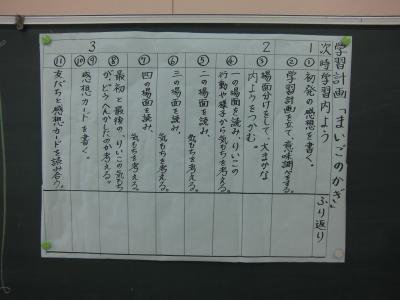 学習計画「まいごのかぎ」
次 時 学習内よう ふり返り
1 ① 初発の感想を書く。
② 学習計画を立て、意味調べをする。
2 ③ 場面分けをして、大まかな
内ようをつかむ。
④ 一の場面を読み、りいこの
⑤ 行動や様子から気もちを考える。
二の場面を読み、
気もちを考える。
⑥ 三の場面を読み、
気もちを考える。
⑦ 四の場面を読み、
気もちを考える。
⑧ 最初と最後の、りいこの気もち
が、どうへんかしたのか考える。
3 ⑨
⑩ 感想カードを書く。
⑪ 友だちと感想カードを読み合う。